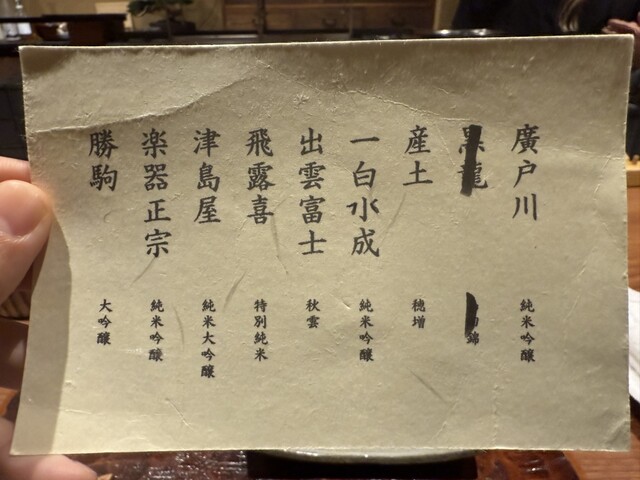 廣戸川 純米吟醸
黒龍 錦
産土 穂増
一白水成 純米吟醸
出雲富士 秋雲
飛露喜 特別純米
津島屋 純米大吟醸
楽器正宗 純米吟醸
勝駒 大吟醸